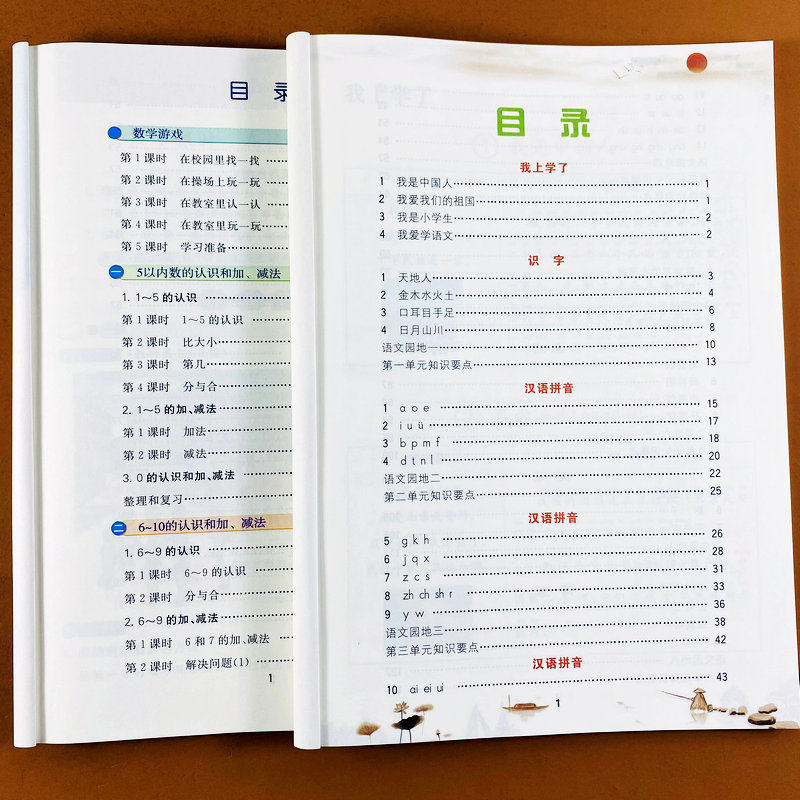 目 录
数学游戏
第1课时 在校园里找一找
第2课时 在操场上玩一玩
第3课时 在教室里认一认
第4课时 在教室里玩一玩
第5课时 学习准备
一 5以内数的认识和加、减法
1. 1～5的认识
第1课时 1～5的认识
第2课时 比大小
第3课时 第几
第4课时 分与合
2. 1～5的加、减法
第1课时 加法
第2课时 减法
3. 0的认识和加、减法
整理和复习
二 6~10的认识和加、减法
1. 6～9的认识
第1课时 6～9的认识
第2课时 分与合
2. 6～9的加、减法
第1课时 6和7的加、减法
第2课时 解决问题(1)
1
目 录
我上学了
1 我是中国人 1
2 我爱我们的祖国 1
3 我是小学生 2
4 我爱学语文 2
识 字
1 天地人 3
2 金木水火土 4
3 口耳目手足 6
4 日月山川 8
语文园地一 10
第一单元知识要点 13
汉语拼音
1 a o e 15
2 i u ü 17
3 b p m f 18
4 d t n l 20
语文园地二 22
第二单元知识要点 25
汉语拼音
5 g k h 26
6 j q x 28
7 z c s 31
8 zh ch sh r 33
9 y w 36
语文园地三 38
第三单元知识要点 42
汉语拼音
10 ai ei ui 43
1